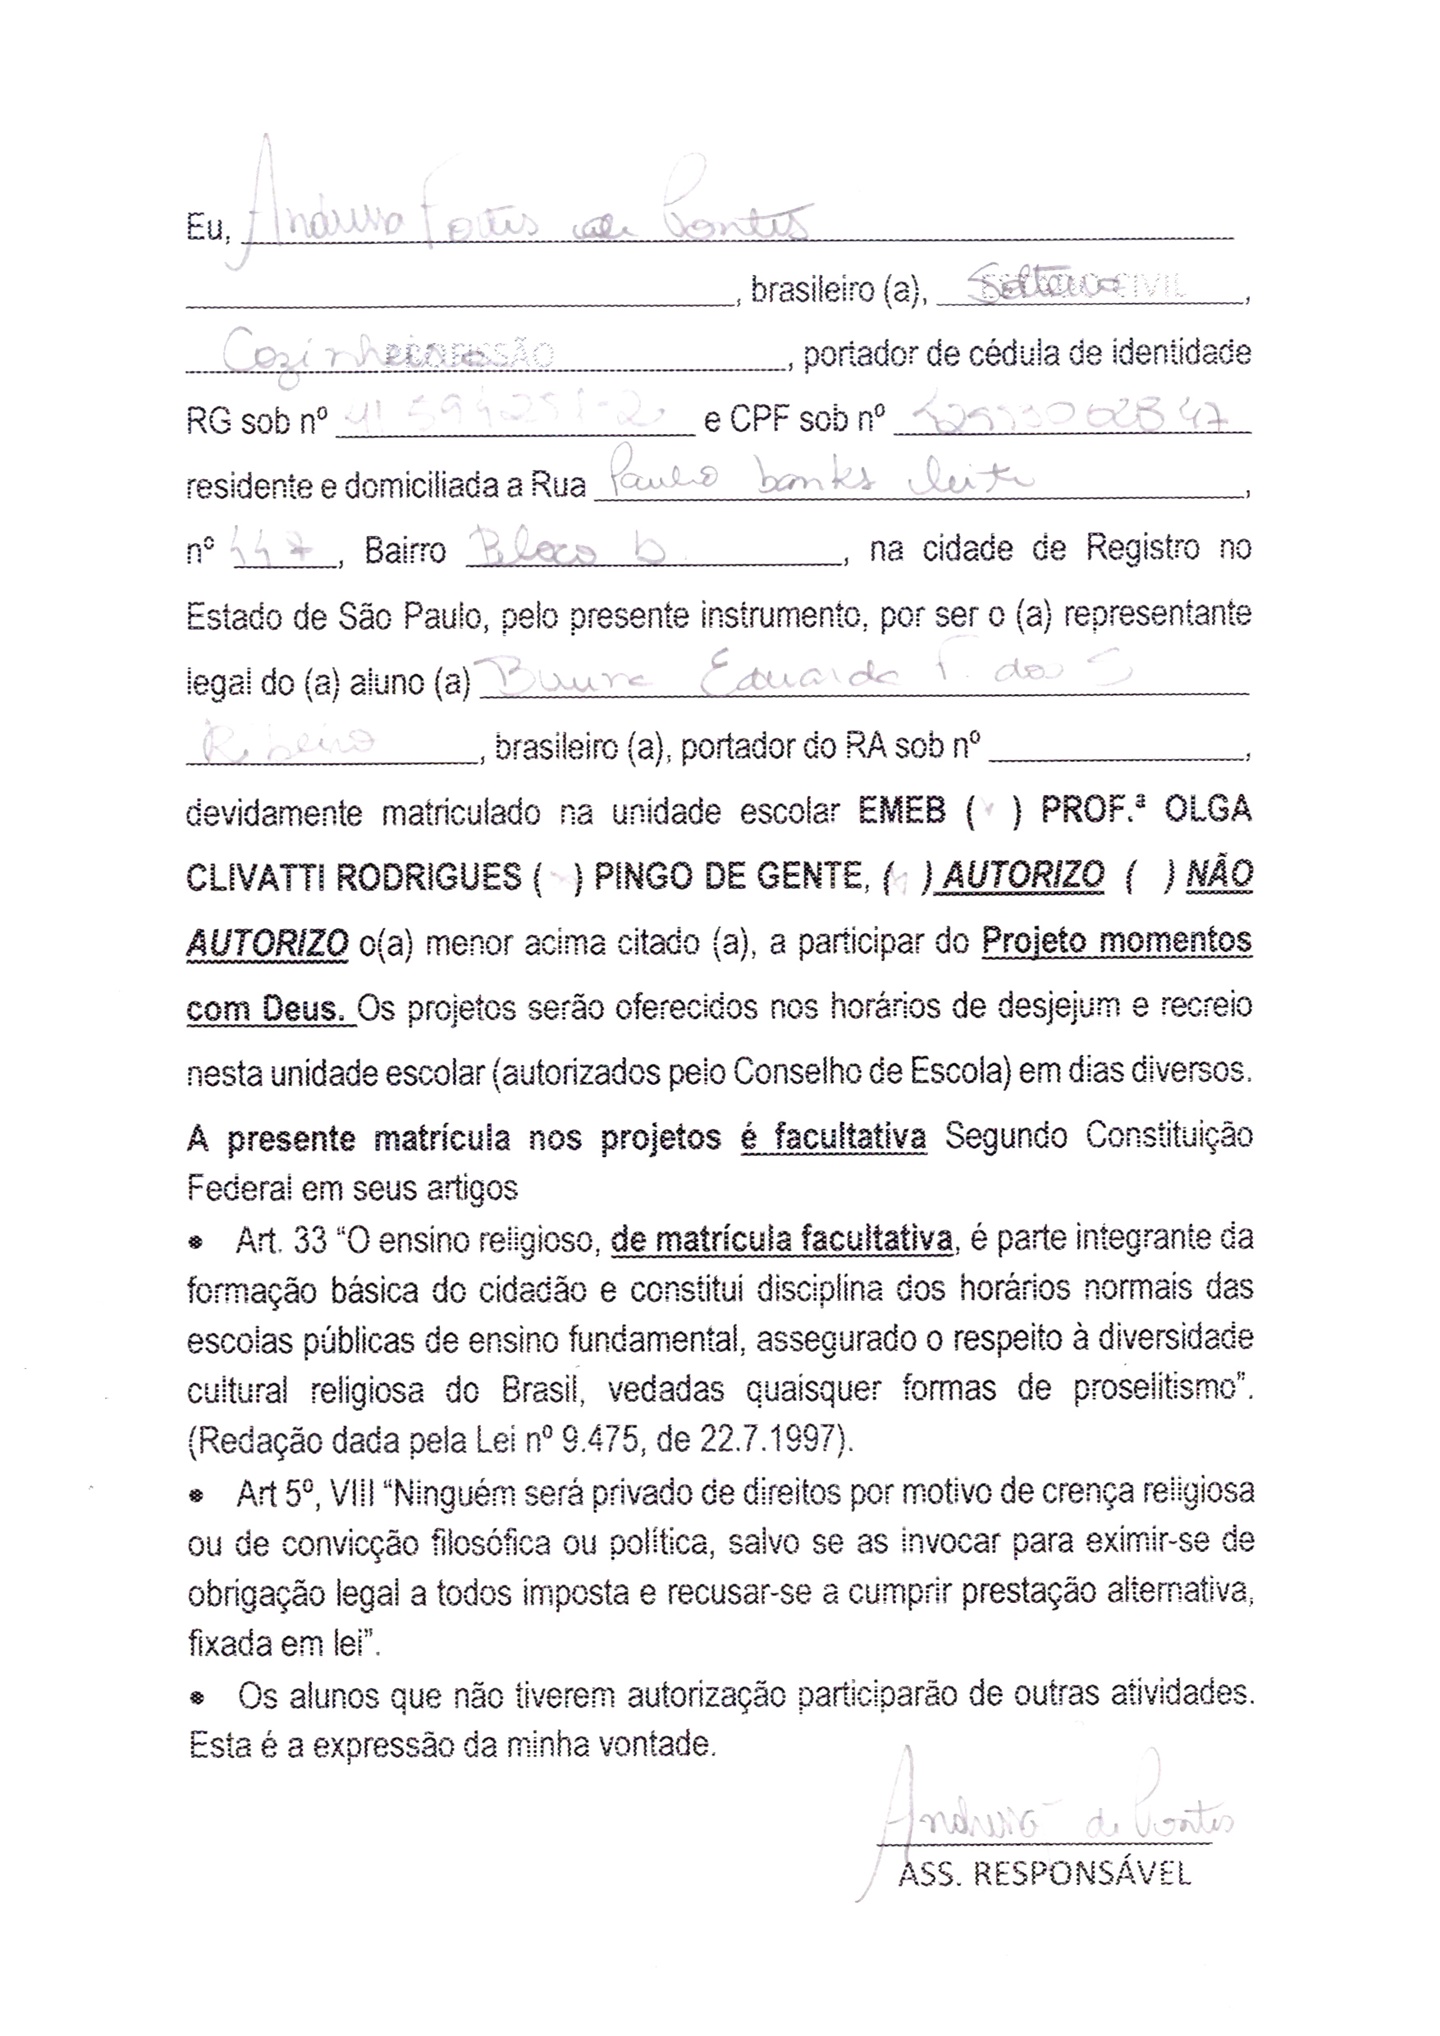 Eu, Andressa Fortes de Pontes
, brasileiro (a), Solteira ESTADO CIVIL,
Cozinheira PROFISSÃO, portador de cédula de identidade
RG sob nº e CPF sob nº
residente e domiciliada a Rua Paulo banks leite,
nº 447, Bairro Bloco b, na cidade de Registro no
Estado de São Paulo, pelo presente instrumento, por ser o (a) representante
legal do (a) aluno (a) Eduarda F. dos S
Ribeiro, brasileiro (a), portador do RA sob nº ,
devidamente matriculado na unidade escolar EMEB ( ) PROF.ª OLGA
CLIVATTI RODRIGUES ( ) PINGO DE GENTE, ( ) AUTORIZO ( ) NÃO
AUTORIZO o(a) menor acima citado (a), a participar do Projeto momentos
com Deus. Os projetos serão oferecidos nos horários de desjejum e recreio
nesta unidade escolar (autorizados pelo Conselho de Escola) em dias diversos.
A presente matrícula nos projetos é facultativa Segundo Constituição
Federal em seus artigos
• Art. 33 “O ensino religioso, de matrícula facultativa, é parte integrante da
formação básica do cidadão e constitui disciplina dos horários normais das
escolas públicas de ensino fundamental, assegurado o respeito à diversidade
cultural religiosa do Brasil, vedadas quaisquer formas de proselitismo”.
(Redação dada pela Lei nº 9.475, de 22.7.1997).
• Art 5º, VIII “Ninguém será privado de direitos por motivo de crença religiosa
ou de convicção filosófica ou política, salvo se as invocar para eximir-se de
obrigação legal a todos imposta e recusar-se a cumprir prestação alternativa,
fixada em lei”.
• Os alunos que não tiverem autorização participarão de outras atividades.
Esta é a expressão da minha vontade.
Andressa de Pontes
ASS. RESPONSÁVEL